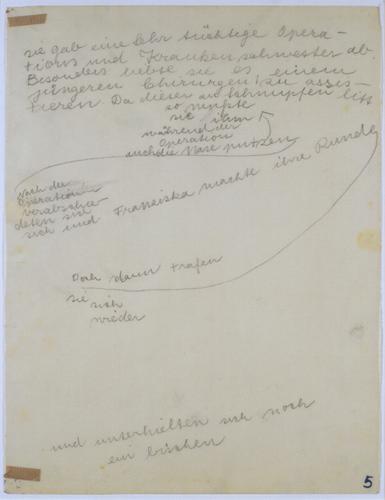 sie gab eine sehr tüchtige Opera-
tions und Krankenschwester ab.
Besonders liebte sie es einem
jüngeren Chirurgen zu assis-
tieren. Da dieser an Schnupfen litt
so mußte
sie ihm
während der
Operation
auch die Nase putzen
Nach der
Operation
verabschie-
deten sie
sich und Franziska machte ihre Runde
Doch dann trafen
sie sich
wieder
und unterhielten sich noch
ein bischen
5